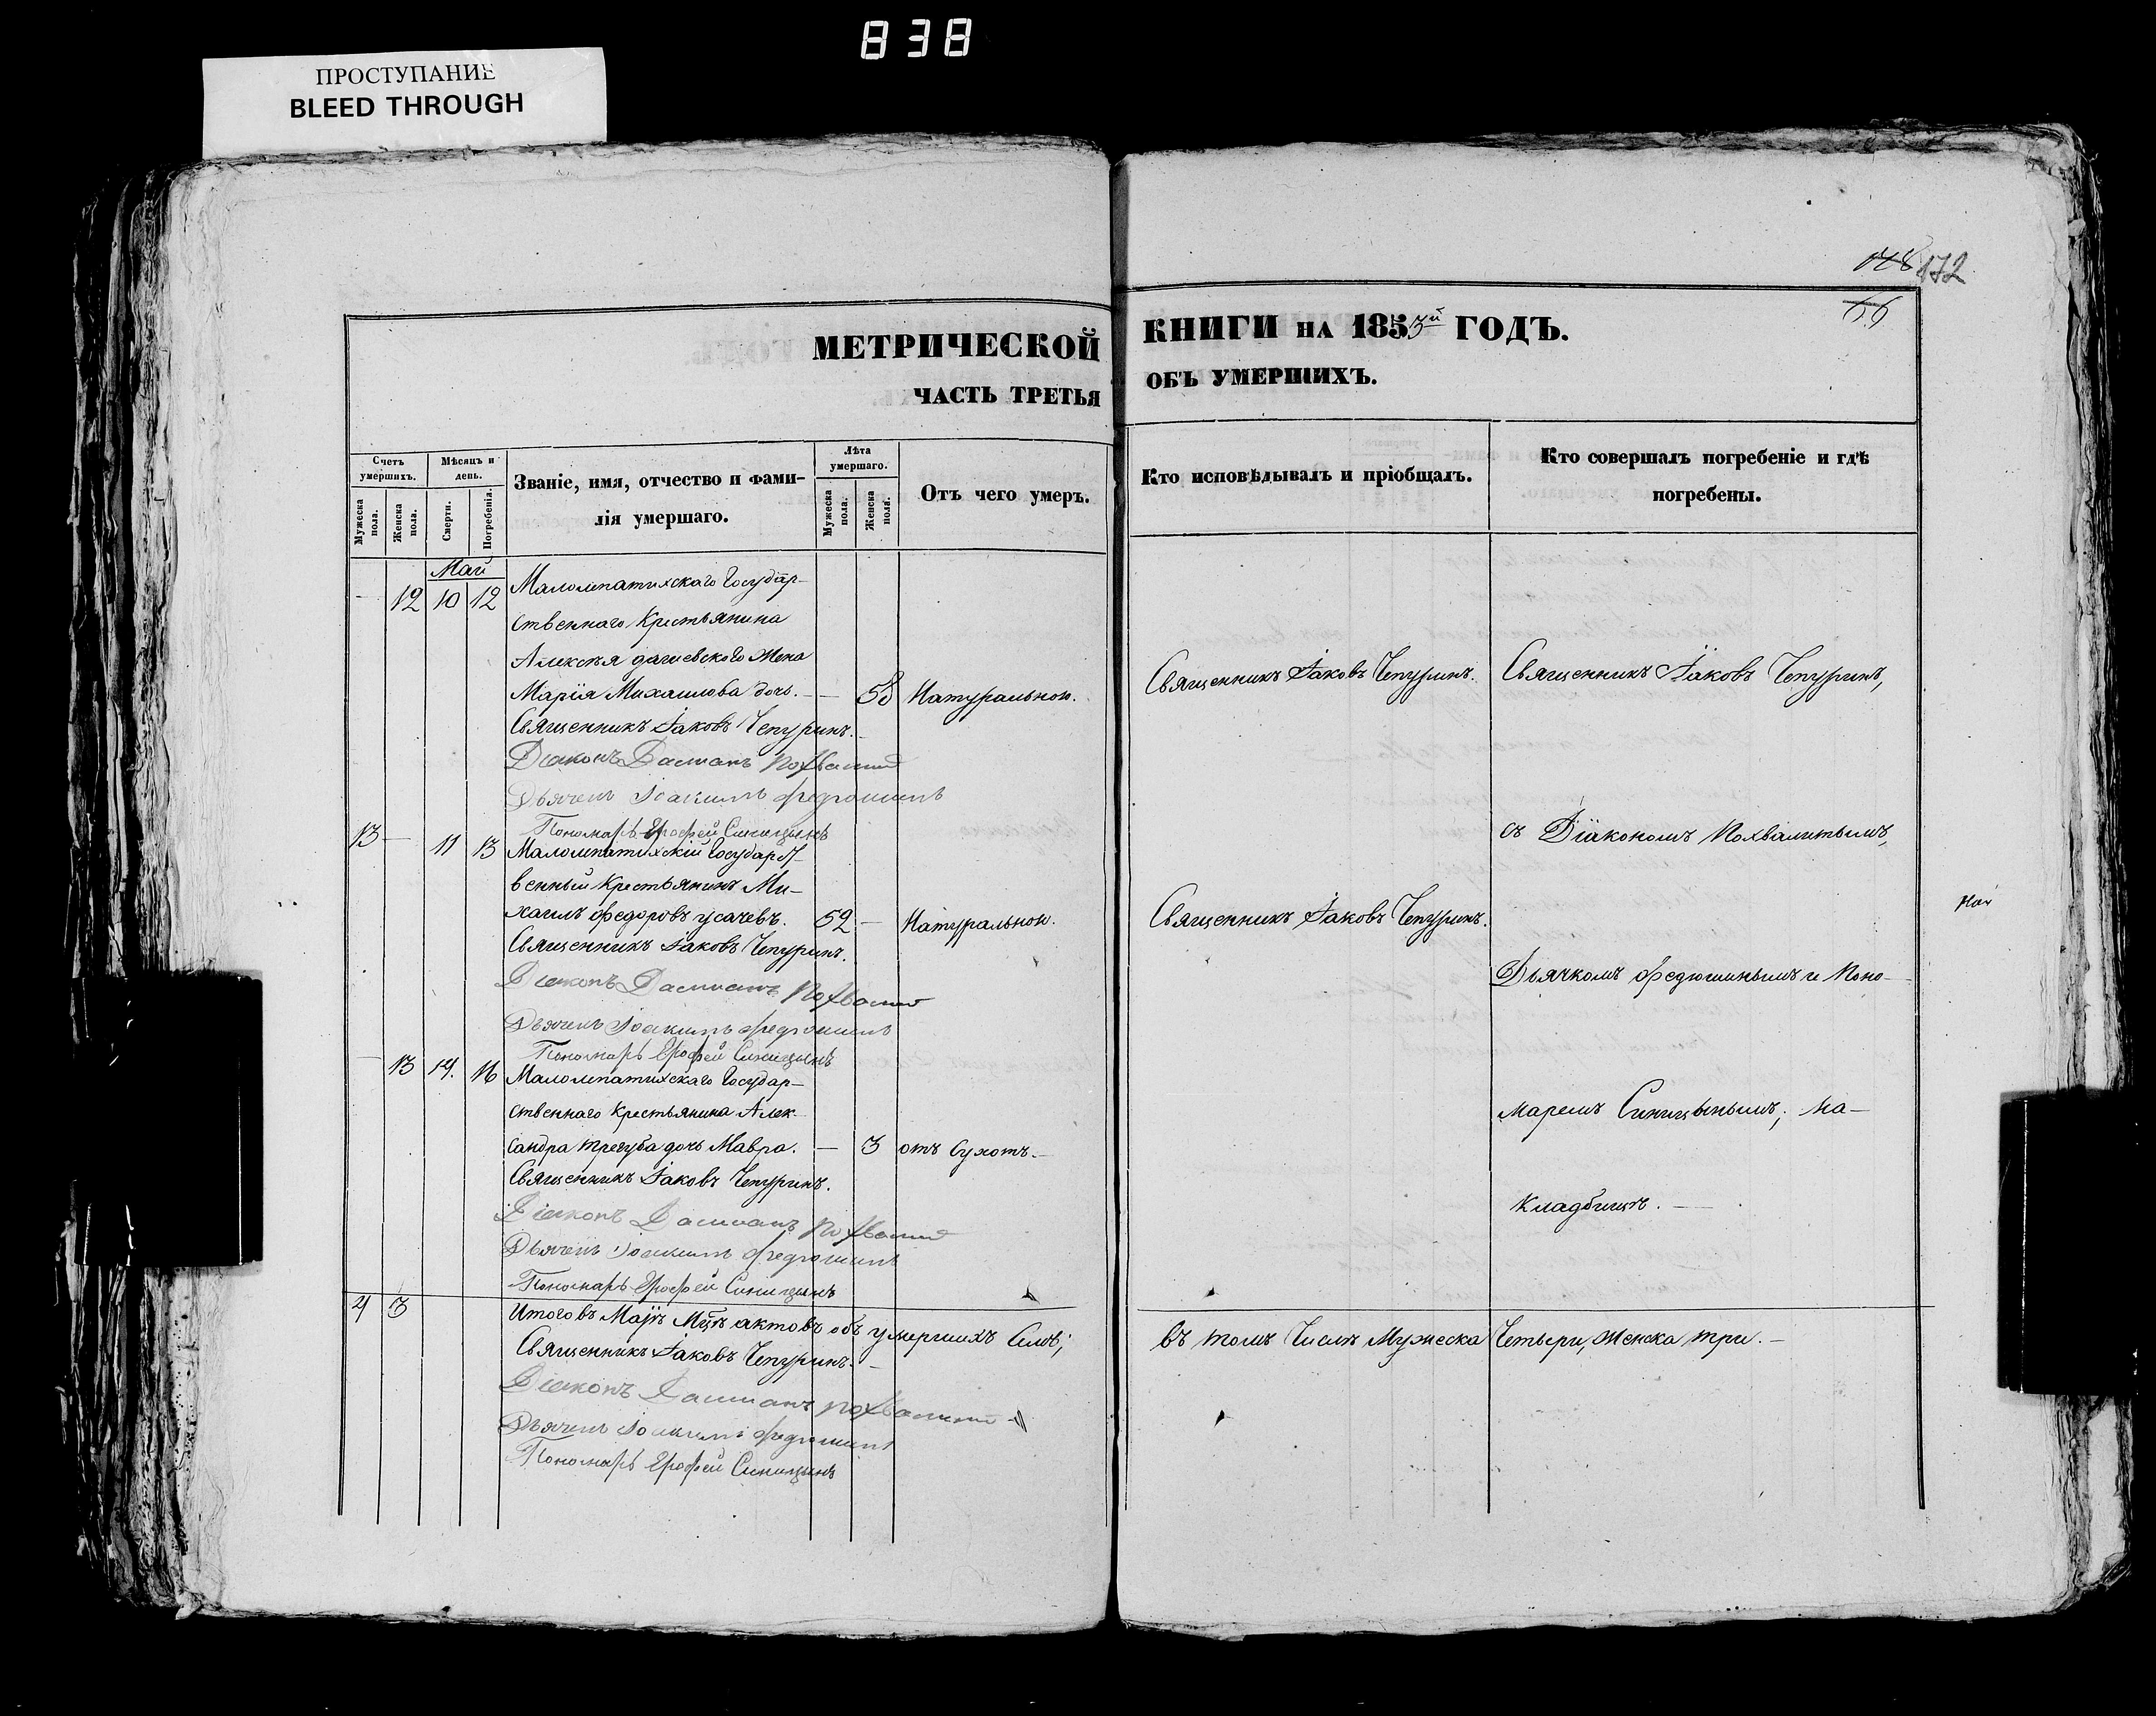 838
ПРОСТУПАНИЕ
BLEED THROUGH
148 172
МЕТРИЧЕСКОЙ КНИГИ НА 1853й ГОДЪ.
ЧАСТЬ ТРЕТЬЯ ОБЪ УМЕРШИХЪ.
Счетъ умершихъ.
Мужеска пола.
Женска пола.
Мѣсяцъ и день.
Смерти.
Погребенія.
Званіе, имя, отчество и фами-
лія умершаго.
Лѣта умершаго.
Мужеска пола.
Женска пола.
Отъ чего умеръ.
Кто исповѣдывалъ и пріобщалъ.
Кто совершалъ погребеніе и гдѣ
погребены.
Май
— 12 10 12 Маломпатихскаго Государ-
ственнаго Крестьянина
Алексѣя жена
Марія Михаилова дочь. — 58 Натуральною. Священникъ Іаковъ Чепуринъ. Священникъ Іаковъ Чепуринъ,
Священникъ Іаковъ Чепуринъ.
Діаконъ Даміанъ
Дьячекъ Іоакимъ Федюшинъ
Пономарь Ерофей Синицынъ
съ Діакономъ Похвалитымъ,
13 — 11 13 Маломпатихскій Государст-
венный Крестьянинъ Ми-
хаилъ Федоровъ Усачевъ. 52 — Натуральною. Священникъ Іаковъ Чепуринъ.
Священникъ Іаковъ Чепуринъ.
Діаконъ Даміанъ
Дьячекъ Іоакимъ Федюшинъ
Пономарь Ерофей Синицынъ
Дьячкомъ Федюшинымъ и Поно-
— 13 14. 16 Маломпатихскаго Государ-
ственнаго Крестьянина Алек-
сандра Трегуба дочь Мавра. — 3 отъ Сухотъ.—
Священникъ Іаковъ Чепуринъ.
Діаконъ Даміанъ
Дьячекъ Іоакимъ Федюшинъ
Пономарь Ерофей Синицынъ
маремъ Синицынымъ; на-
Кладбищѣ. —
4 3 Итого въ Маіѣ Мцѣ актовъ объ умершихъ Семь; въ томъ Числѣ Мужеска Четыри, Женска три. —
Священникъ Іаковъ Чепуринъ. —
Діаконъ Даміанъ
Дьячекъ Іоакимъ Федюшинъ
Пономарь Ерофей Синицынъ